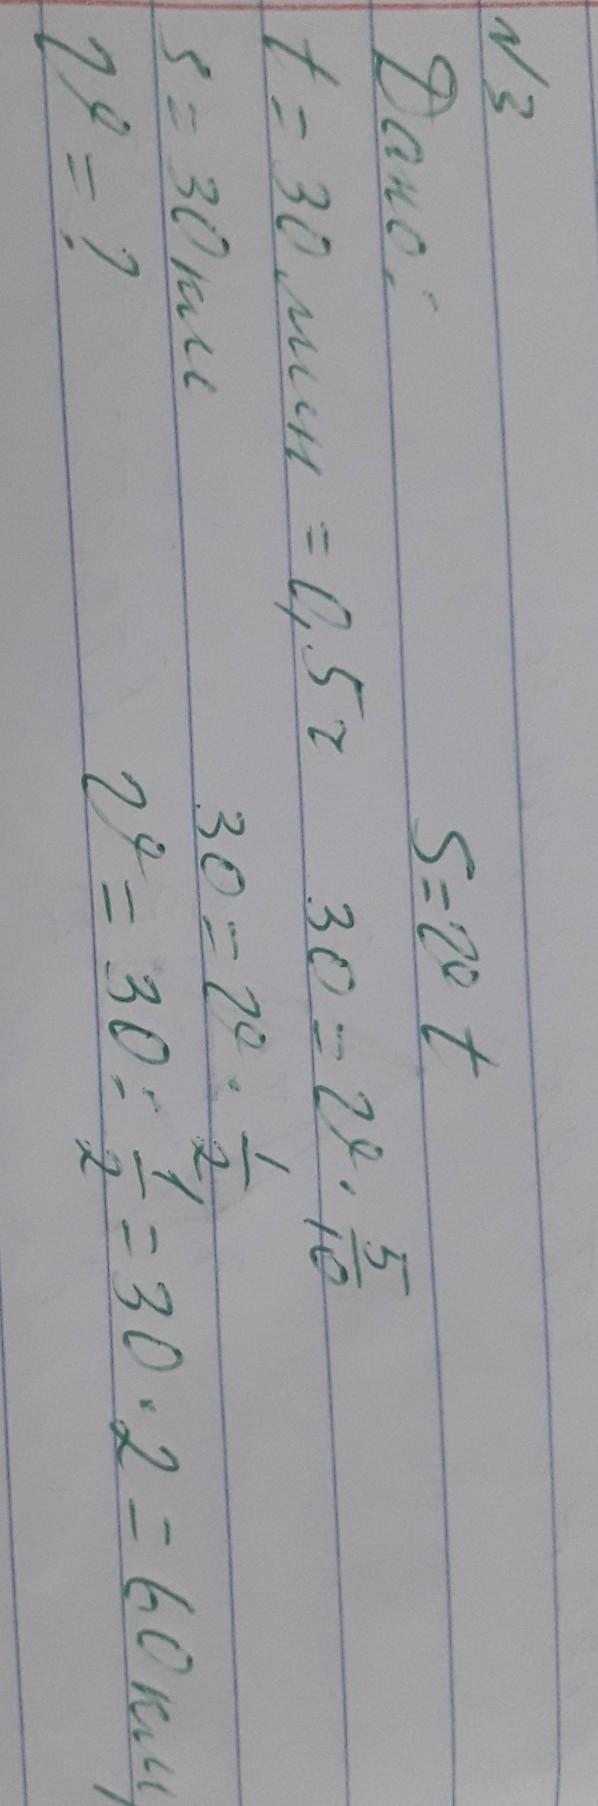 №3
Дано:
t = 30 мин = 0,5 ч
s = 30 км
v = ?
S = v t
30 = v · 5/10
30 = v · 1/2
v = 30 : 1/2 = 30 · 2 = 60 км/